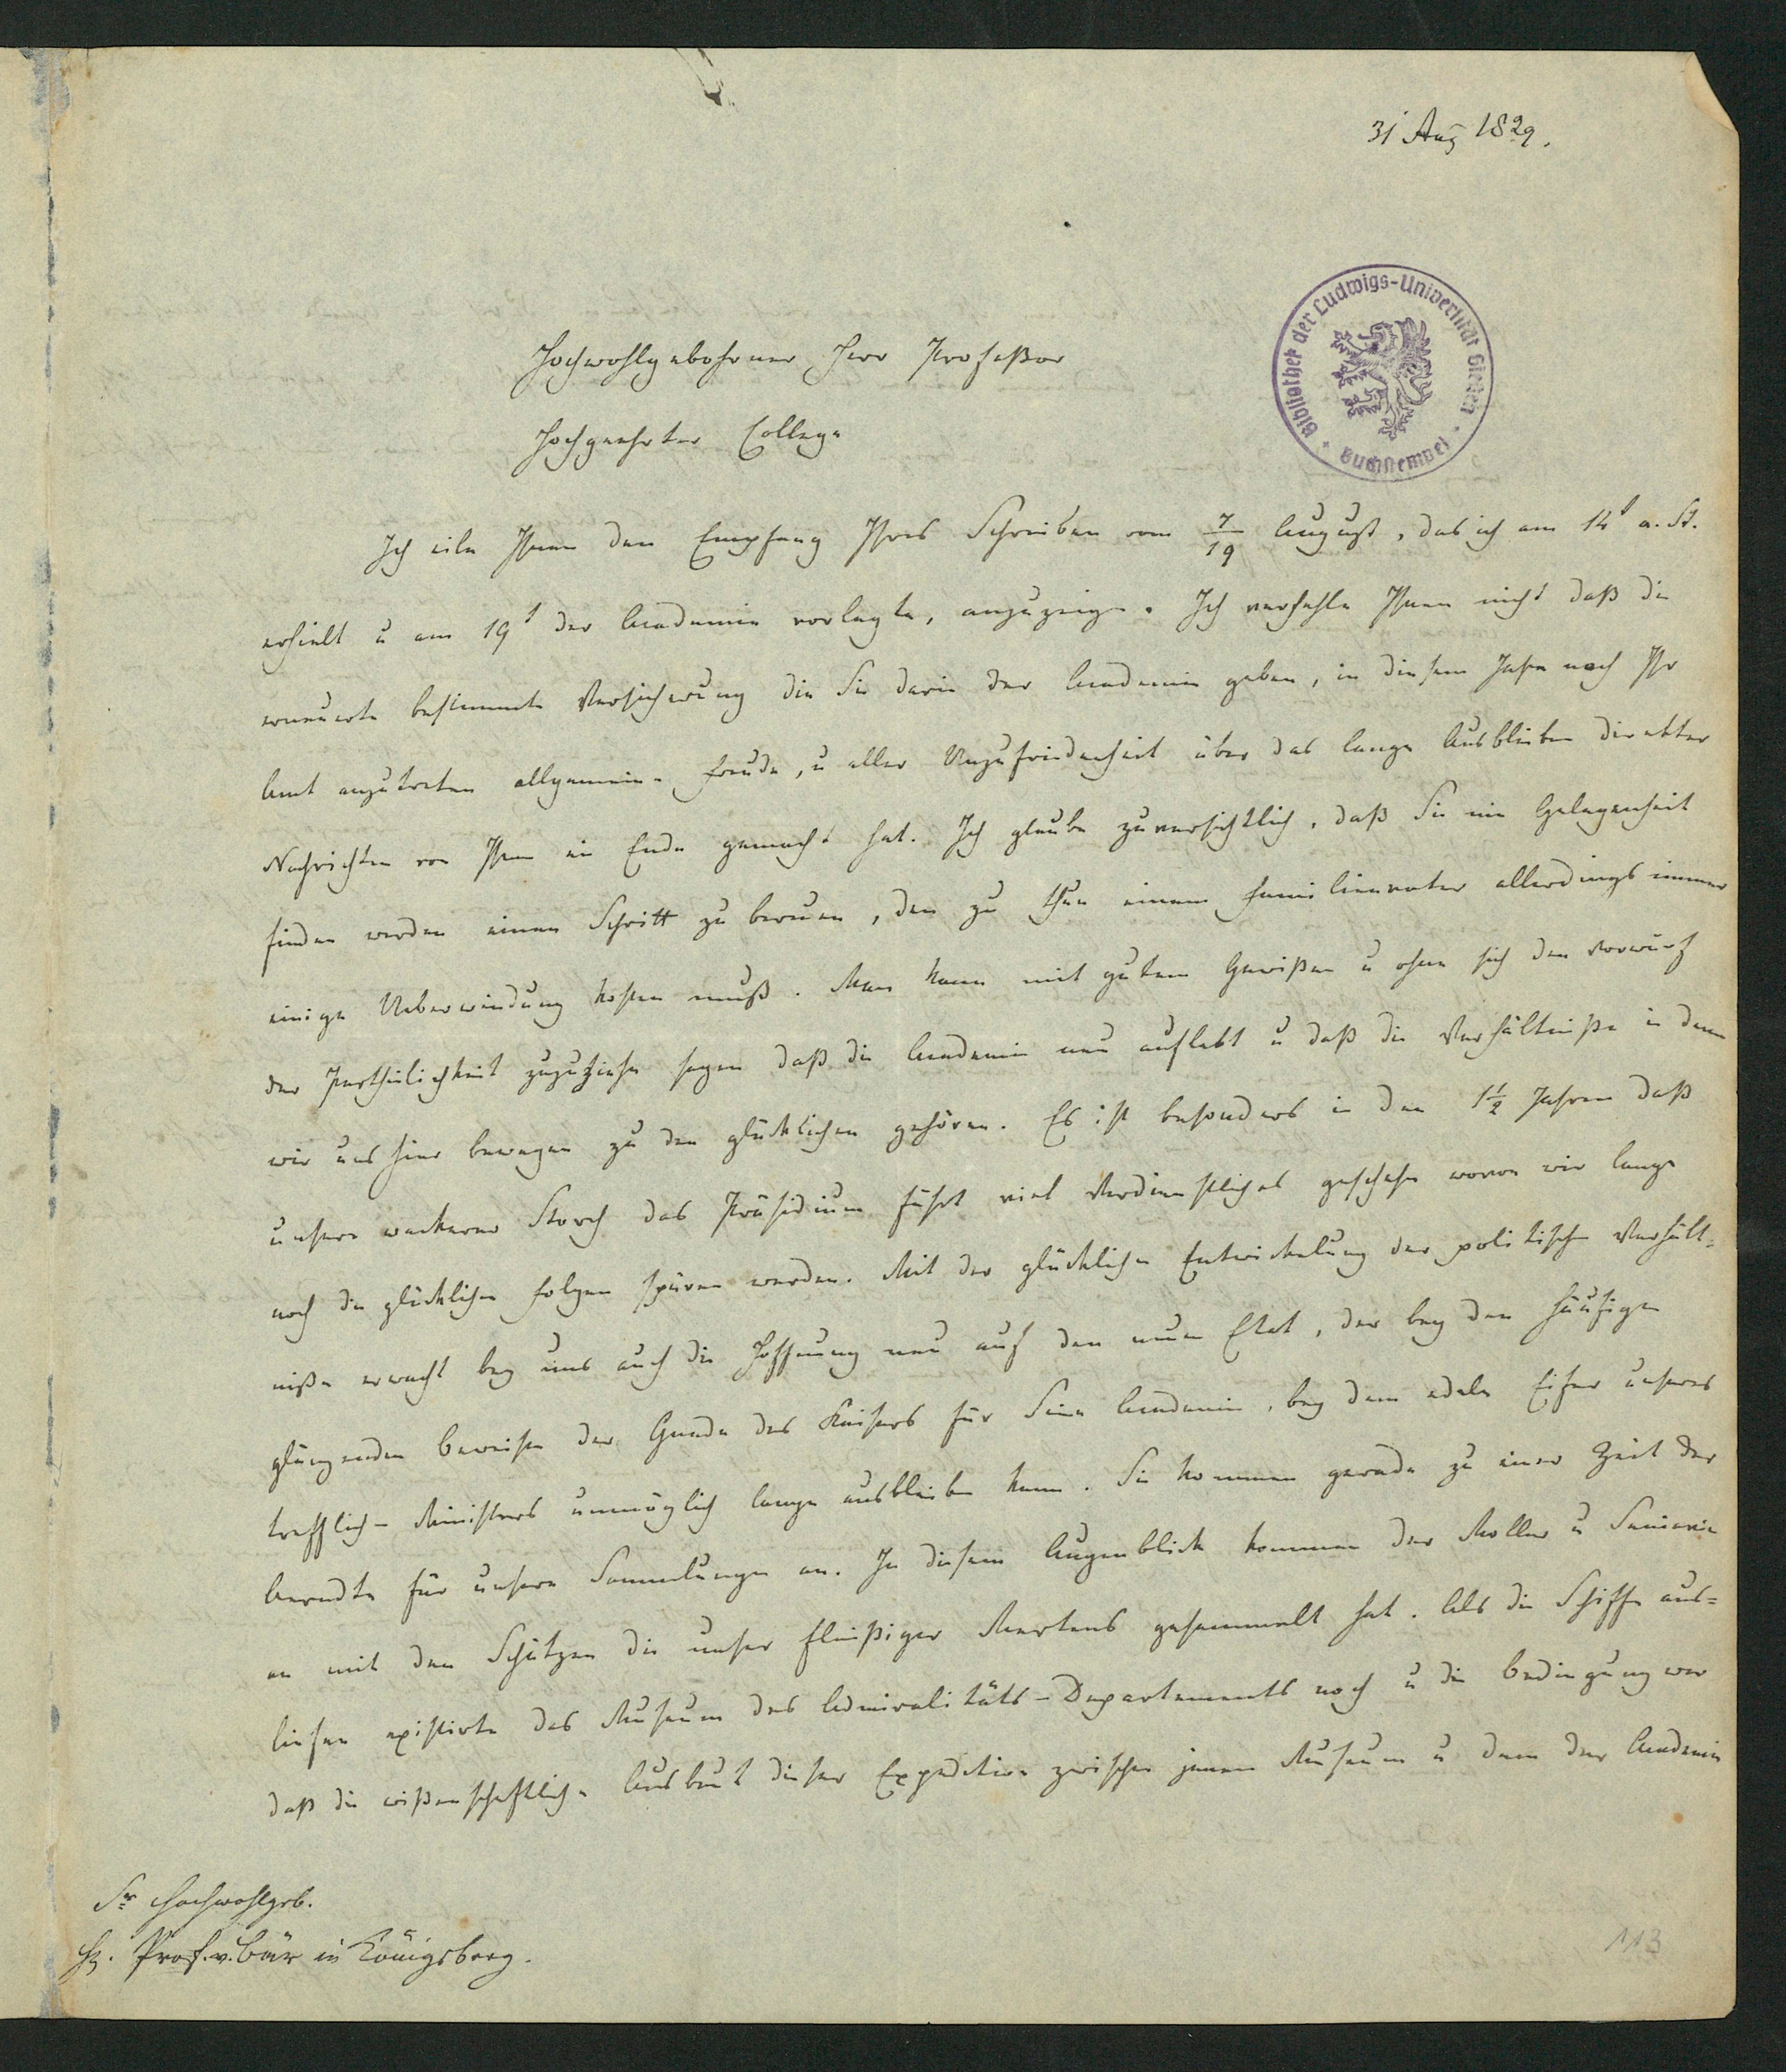 31 Aug 1829.
Bibliothek der Ludwigs-Universität Gießen
Buchstempel
Hochwohlgebohrner Herr Profeßor
Hochgeehrter College
Ich eile Ihnen den Empfang Ihres Schreiben vom 7/19 August, das ich am 14t a. St.
erhielt u am 19t der Academie vorlegte, anzuzeigen. Ich verhehle Ihnen nicht daß die
erneuerte bestimmte Versicherung die Sie darin der Academie geben, in diesem Jahre noch Ihr
Amt anzutreten allgemeine Freude, u aller Unzufriedenheit über das lange Ausbleiben direkter
Nachrichten von Ihnen ein Ende gemacht hat. Ich glaube zuversichtlich, daß Sie nie Gelegenheit
finden werden einen Schritt zu bereuen, den zu thun einem Familienvater allerdings immer
einige Ueberwindung kosten muß. Man kann mit gutem Gewißen u ohne sich den Vorwurf
der Partheilichkeit zuzuziehen sagen daß die Academie neu auflebt u daß die Verhältniße in denen
wir uns hier bewegen zu den glücklichen gehören. Es ist besonders in den 1 1/2 Jahren daß
unser wackerer Storch das Präsidium führt viel Verdienstliches geschehen wovon wir lange
noch die glücklichen Folgen spüren werden. Mit der glücklichen Entwickelung der politischen Verhält-
niße erwacht bey uns auch die Hoffnung neu auf den neuen Etat, der bey den häufigen
glänzenden Beweisen der Gnade des Kaisers für Seine Academie, bey dem edeln Eifer unseres
trefflichen Ministers unmöglich lange ausbleiben kann. Sie kommen gerade zu einer Zeit der
Aerndte für unsere Sammlungen an. In diesem Augenblick kommen der Moller u Seniavin
an mit den Schätzen die unser fleißiger Mertens gesammelt hat. Als die Schiffe aus-
liefen existirte das Museum des Admiralitäts-Departements noch u die Bedingung war
daß die wißenschaftliche Ausbeut dieser Expedition zwischen jenem Museum u dem der Academie
Sr Hochwohlgeb.
H. Prof. v. Bär in Königsberg.
113